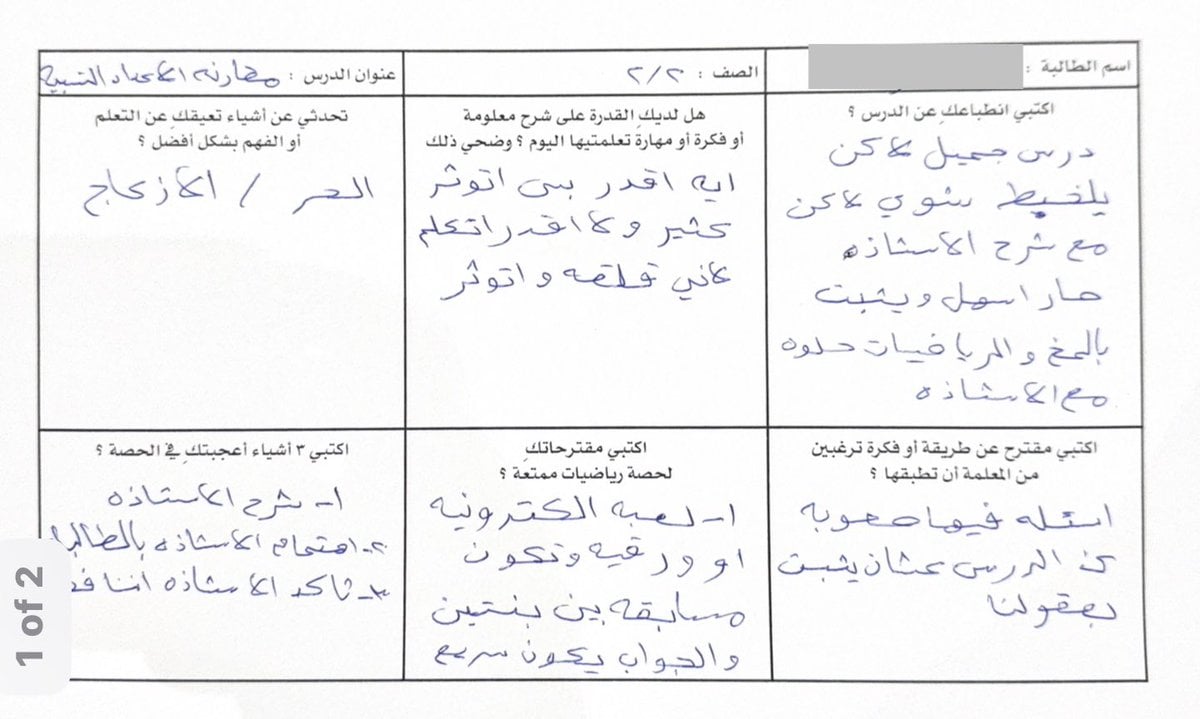 اسم الطالبة :
الصف : ٢/٢
عنوان الدرس : مقارنه الاعداد النسبيه
اكتبي انطباعك عن الدرس ؟
درس جميل لاكن
يلخبط شوي لاكن
مع شرح الاستاذه
صار اسهل ويثبت
بالمخ والرياضيات حلوه
مع الاستاذه
هل لديكِ القدرة على شرح معلومة
أو فكرة أو مهارة تعلمتيها اليوم ؟ وضحي ذلك
ايه اقدر بس اتوثر
كثير ولا اقدر اتكلم
لاني قلقه واتوثر
تحدثي عن أشياء تعيقكِ عن التعلم
أو الفهم بشكل أفضل ؟
الحر / الازعاج
اكتبي مقترح عن طريقة أو فكرة ترغبين
من المعلمة أن تطبقها ؟
اسئله فيها صعوبه
عن الدرس عشان يثبت
بعقولنا
اكتبي مقترحاتكِ
لحصة رياضيات ممتعة ؟
١- لعبه الكترونيه
او ورقيه وتكون
مسابقه بين بنتين
والجواب يكون سريع
اكتبي ٣ أشياء أعجبتكِ في الحصة ؟
١- شرح الاستاذه
٢- اهتمام الاستاذه بالطالبا
٣- تاكد الاستاذه اننا
1 of 2